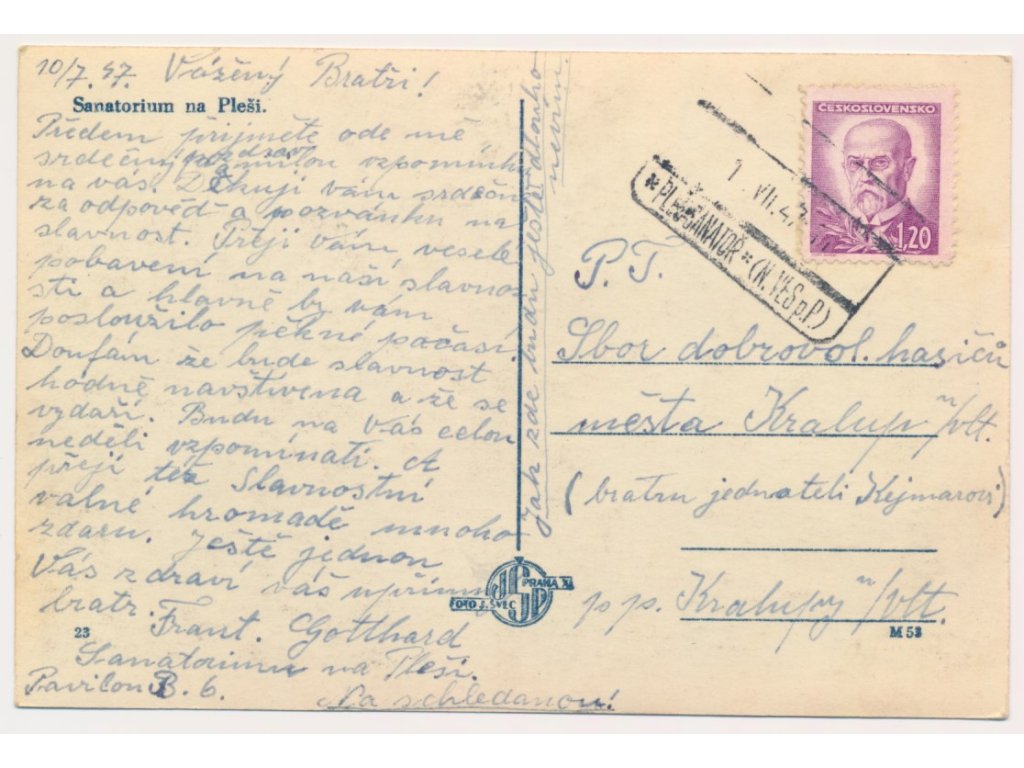 10/7.47. Vážený Bratři!
Sanatorium na Pleši.
Předem přijměte ode mě
srdečný pozdrav a milou vzpomínku
na vás. Děkuji vám srdečně
za odpověď a pozvánku na
slavnost. Přeji vám, veselé
pobavení, na naší slavno-
sti a hlavně by vám
posloužilo pěkné počasí.
Doufám že bude slavnost
hodně navštívena a že se
vydaří. Budu na Vás celou
neděli vzpomínati. A
přeji též Slavnostní
valné hromadě mnoho
zdaru. Ještě jednou
Vás zdraví váš upřímný
bratr. Frant. Gotthard
Sanatorium na Pleši.
Pavilon B. 6.
Na schledanou!
23
Jak zde budu ještě dlouho
nevím.
FOTO J. ŠVEC PRAHA XI
ČESKOSLOVENSKO
1,20
VII.47
* PLEŠ SANATOŘ * (N. VES p. P.)
P. T.
Sbor dobrovol. hasičů
města Kralup n/vlt.
(bratru jednateli Kejmarovi)
pp. Kralupy n/vlt.
M 53